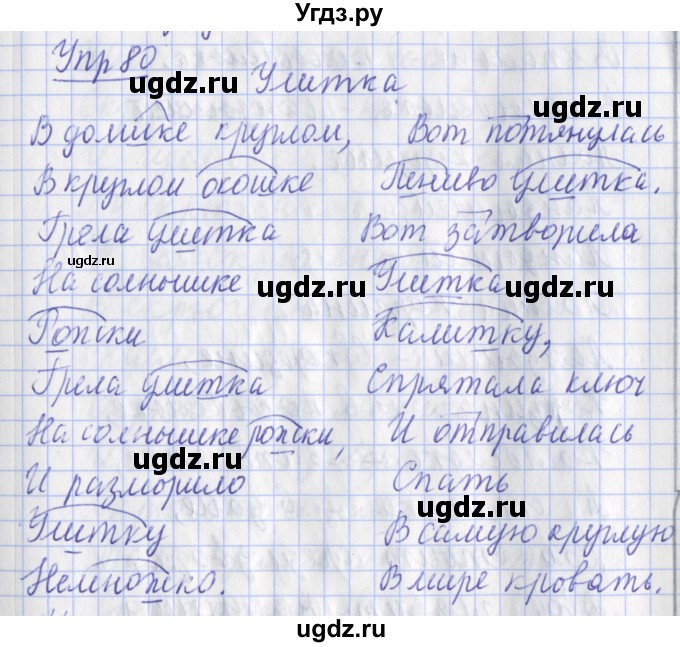 Угдз.ру
Упр 80
Улитка
В домике круглом,
В круглом окошке
Грела улитка
На солнышке
Рожки
Грела улитка
На солнышке рожки,
И разморило
Улитку
Немножко.
Вот потянулась
Лениво улитка.
Вот затворила
Улитка
Калитку,
Спрятала ключ
И отправилась
Спать
В самую круглую
В мире кровать.
ugdz.ru
ugdz.ru
ugdz.ru
ugdz.ru
ugdz.ru
ugdz.ru
ugdz.ru
ugdz.ru
ugdz.ru
ugdz.ru
ugdz.ru